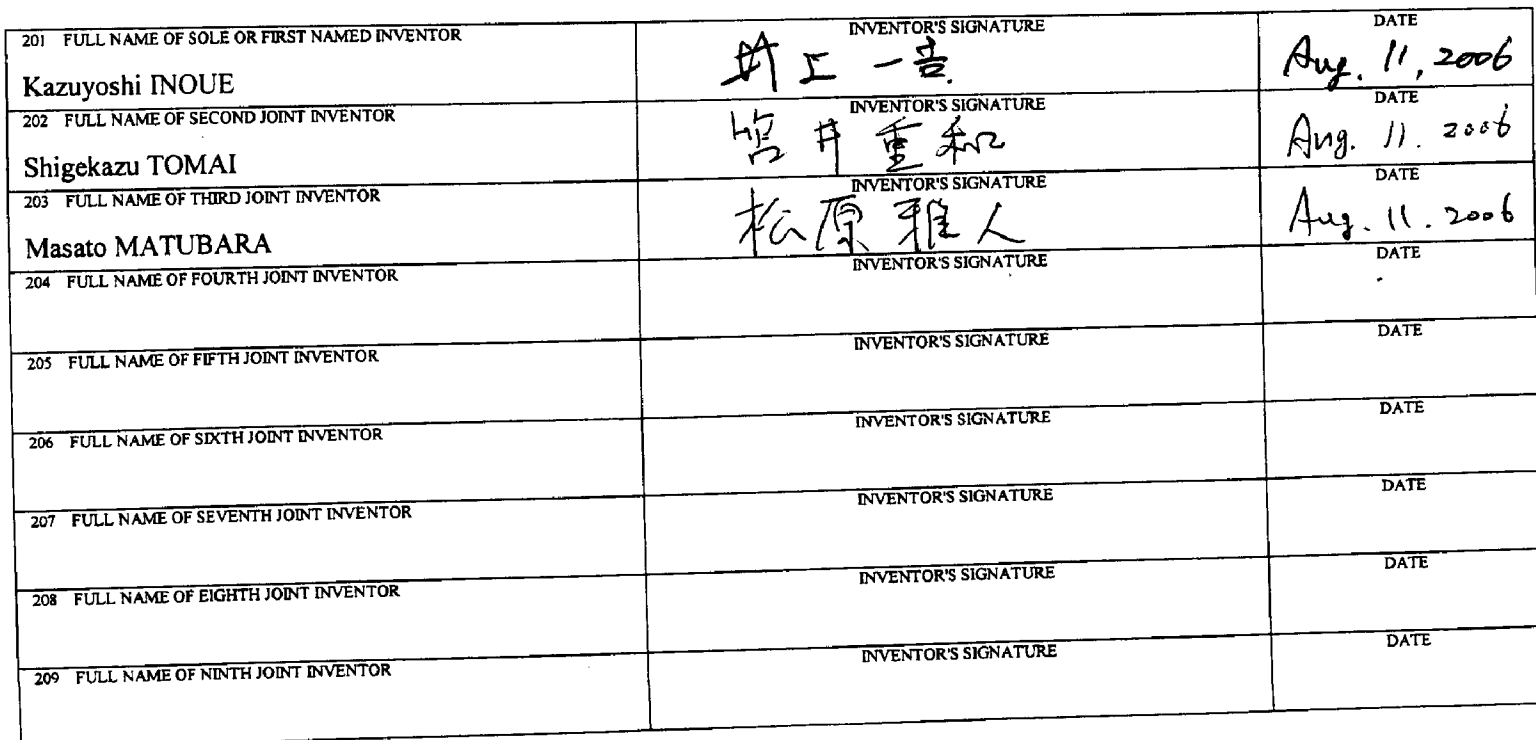 201 FULL NAME OF SOLE OR FIRST NAMED INVENTOR INVENTOR'S SIGNATURE DATE
Kazuyoshi INOUE 井上 一吉 Aug. 11, 2006
202 FULL NAME OF SECOND JOINT INVENTOR INVENTOR'S SIGNATURE DATE
Shigekazu TOMAI 笘井 重和 Aug. 11. 2006
203 FULL NAME OF THIRD JOINT INVENTOR INVENTOR'S SIGNATURE DATE
Masato MATUBARA 松原 雅人 Aug. 11. 2006
204 FULL NAME OF FOURTH JOINT INVENTOR INVENTOR'S SIGNATURE DATE
205 FULL NAME OF FIFTH JOINT INVENTOR INVENTOR'S SIGNATURE DATE
206 FULL NAME OF SIXTH JOINT INVENTOR INVENTOR'S SIGNATURE DATE
207 FULL NAME OF SEVENTH JOINT INVENTOR INVENTOR'S SIGNATURE DATE
208 FULL NAME OF EIGHTH JOINT INVENTOR INVENTOR'S SIGNATURE DATE
209 FULL NAME OF NINTH JOINT INVENTOR INVENTOR'S SIGNATURE DATE